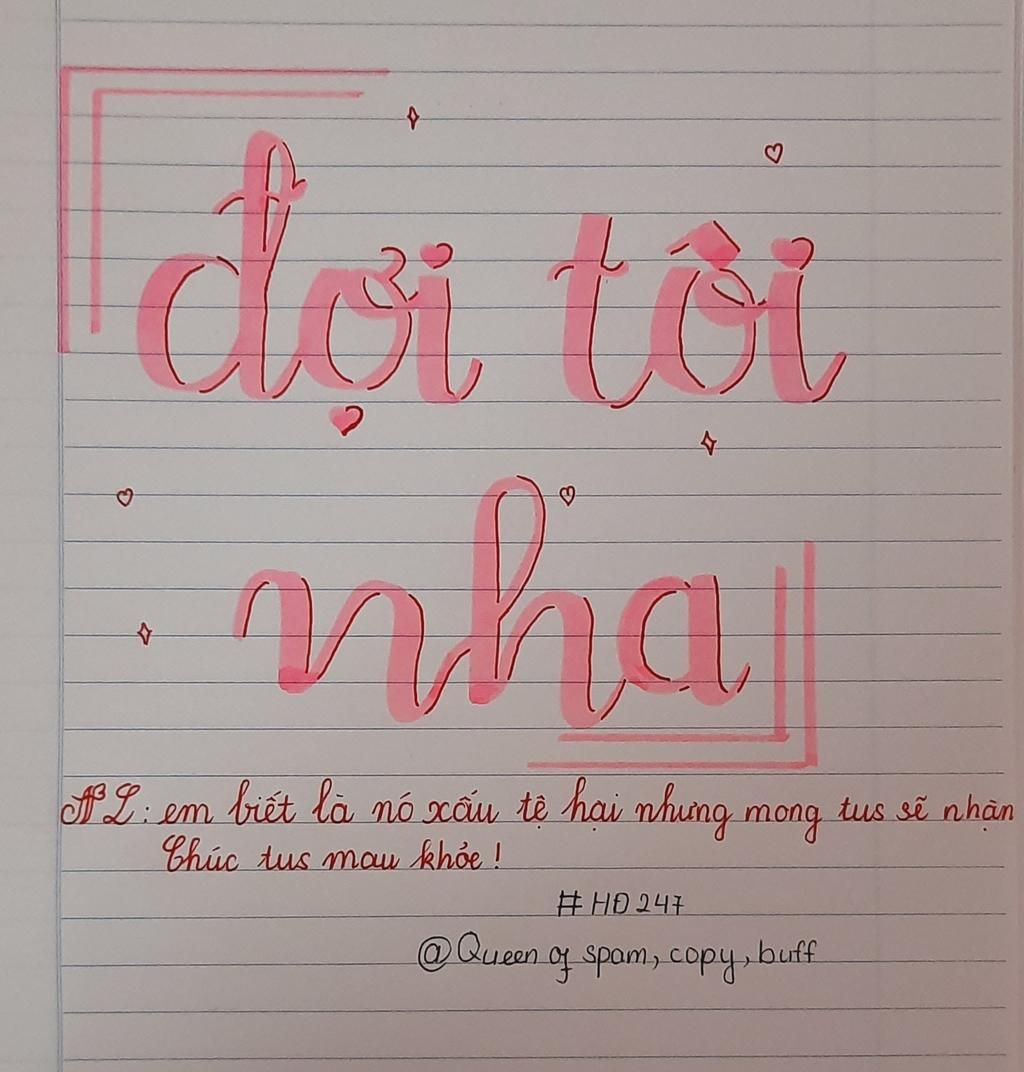 đợi tôi
nha
NL: em biết là nó xấu tệ hại nhưng mong tus sẽ nhận
Chúc tus mau khỏe!
#HĐ247
@Queen of spam, copy, buff